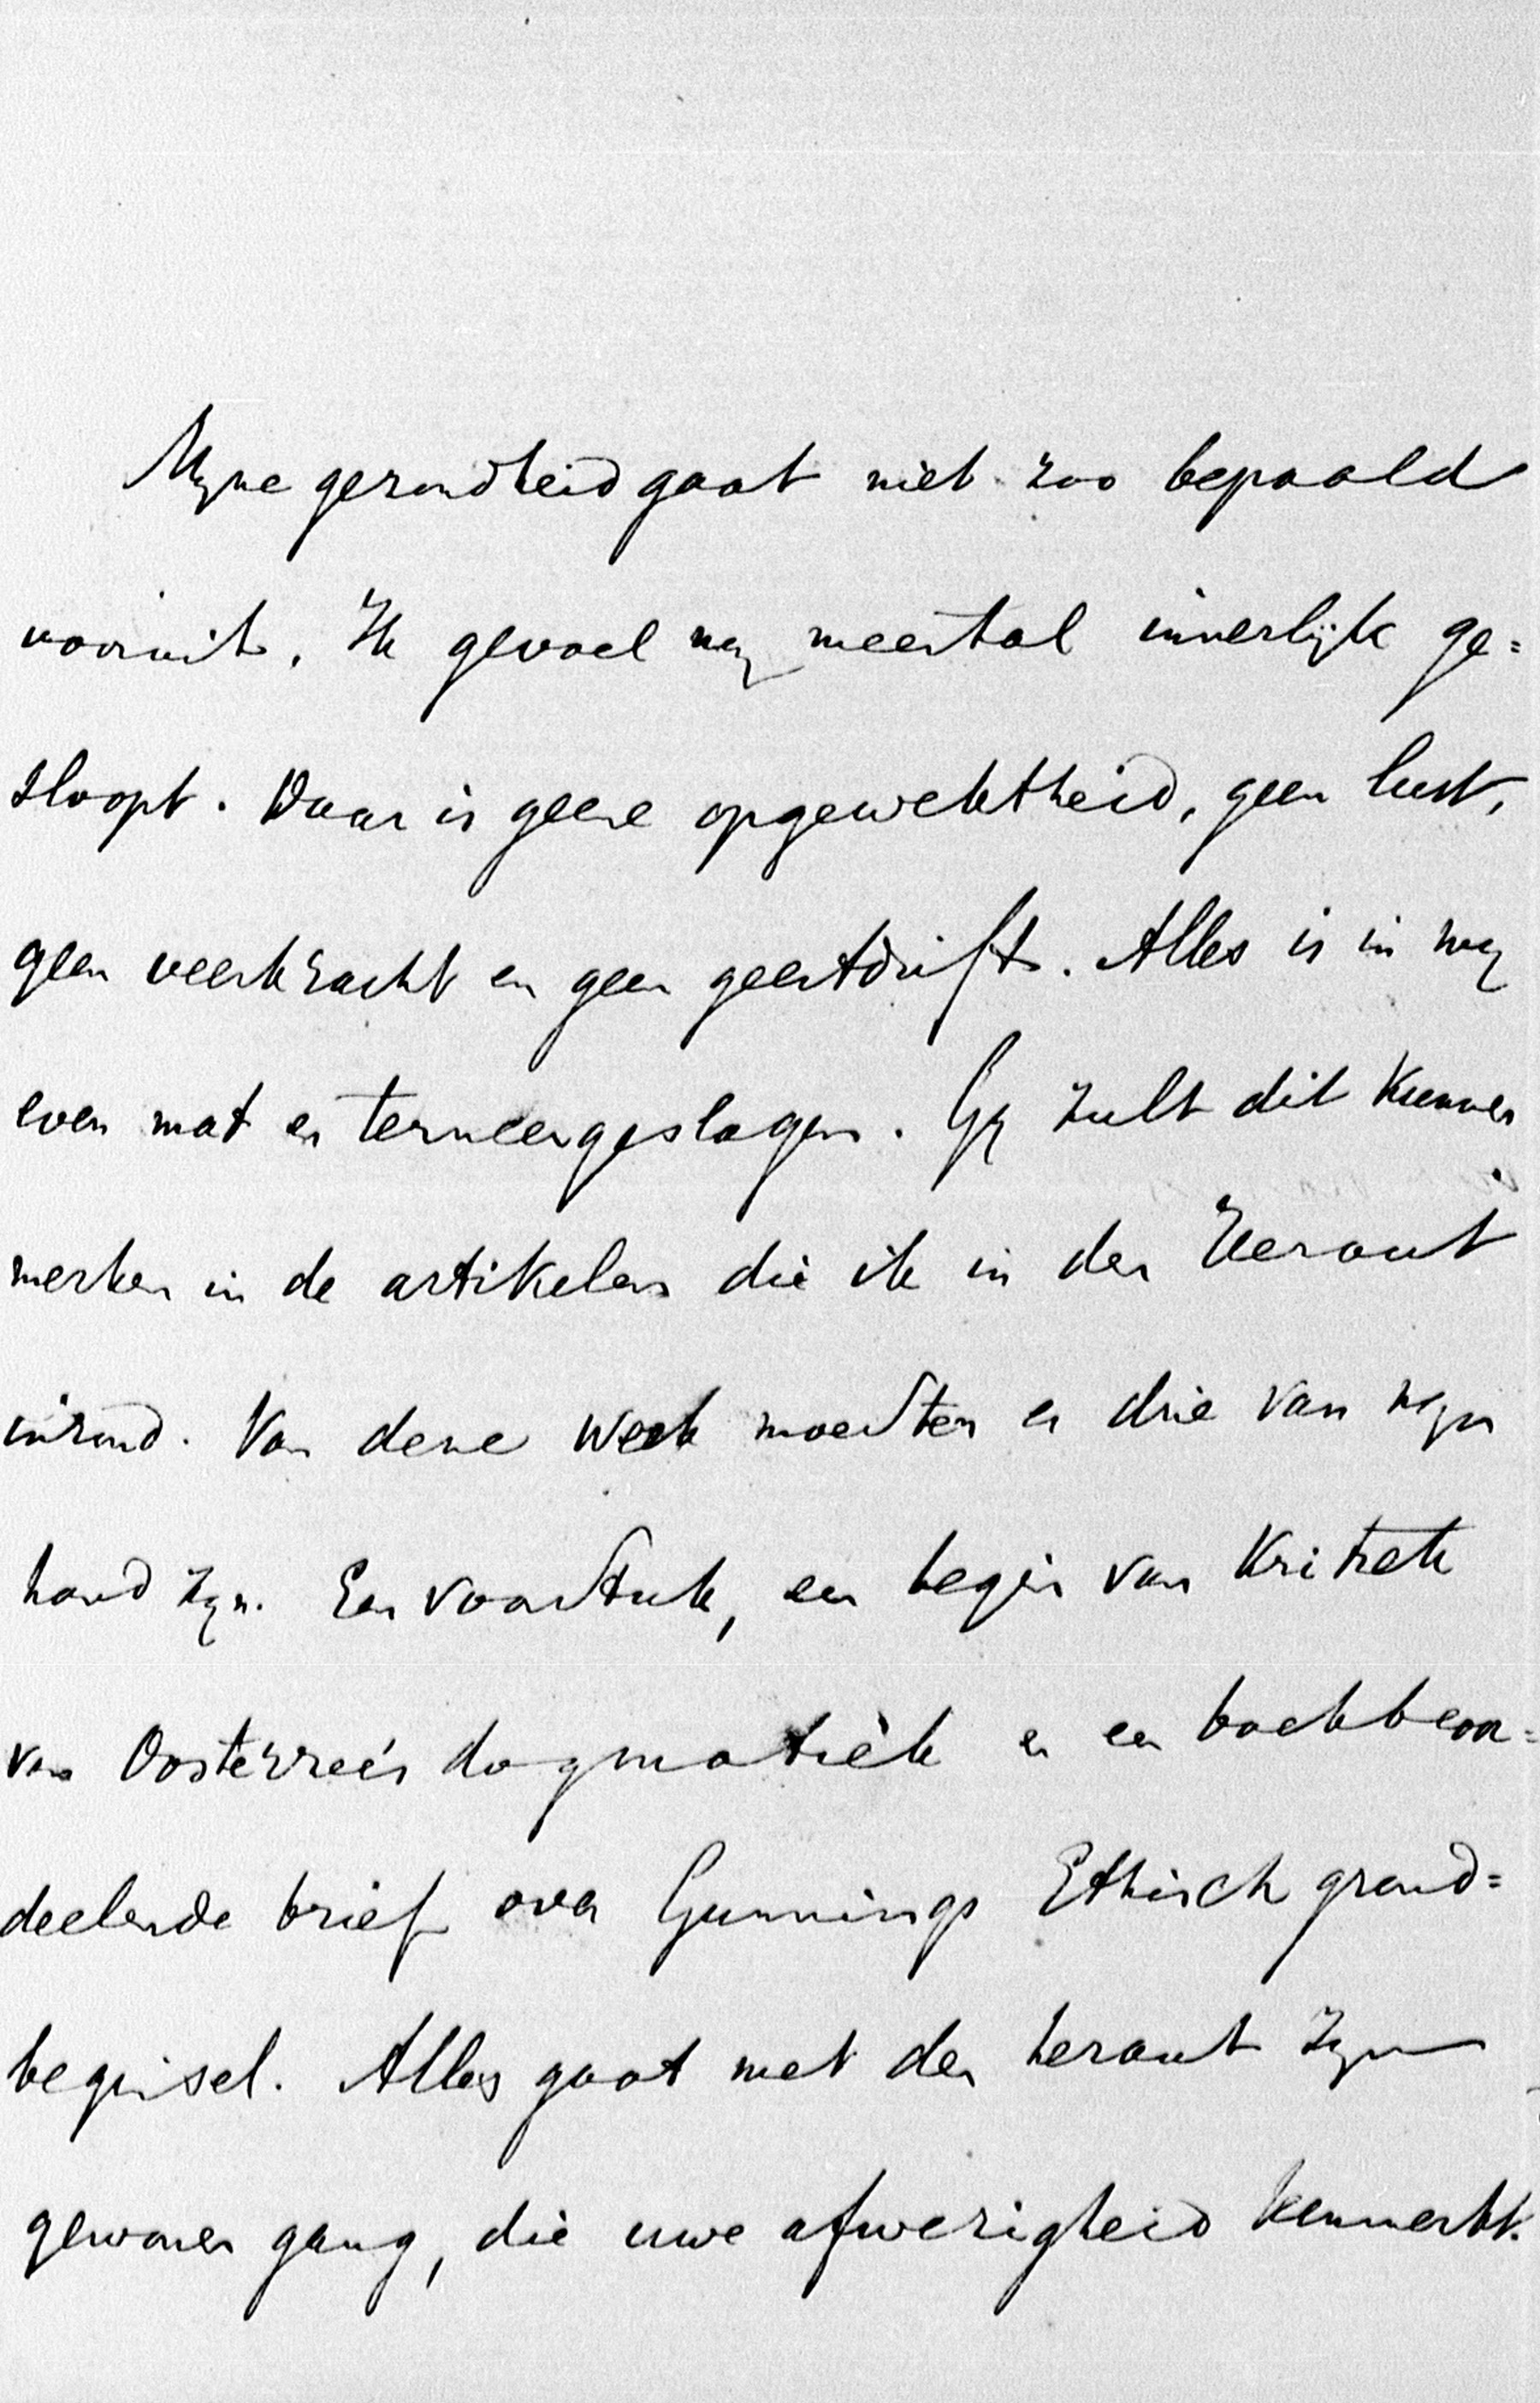 Mijne gezondheid gaat niet zoo bepaald
vooruit. Ik gevoel mij meestal innerlijk ge=
sloopt. Daar is geene opgewektheid, geen lust,
geen veerkracht en geen geestdrift. Alles is in mij
even mat en terneergeslagen. Gij zult dit kunnen
merken in de artikelen die ik in den Heraut
inzond. Van deze week moesten er drie van mijn
hand zijn. Een voorstuk, een begin van Kritiek
van Oosterzee's dogmatiek en een boekbeoor=
deelende brief over Gunnings Ethisch grond=
beginsel. Alles gaat met den heraut zijn
gewonen gang, die uwe afwezigheid kenmerkt.